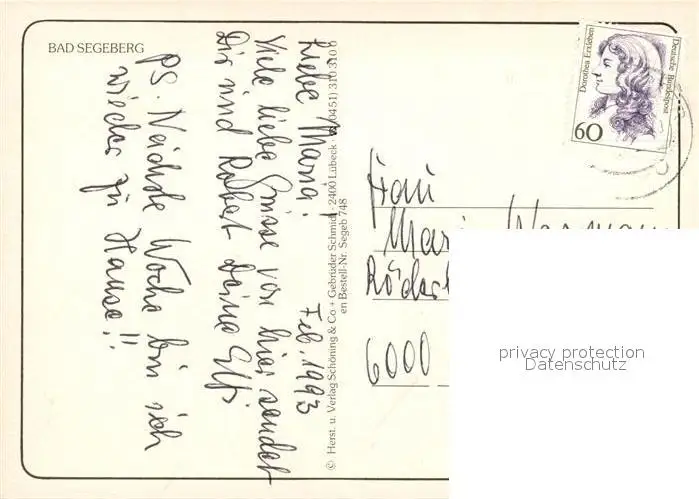 BAD SEGEBERG
Liebe Maria! Feb. 1993
Viele liebe Grüsse von hier sendet
Dir und Robert Deine Elfi
PS. Nächste Woche bin ich
wieder zu Hause!!
© Herst. u. Verlag Schöning & Co. + Gebrüder Schmidt - 2400 Lübeck (0451) 310310
en Bestell-Nr. Segeb 748
Dorothea Erxleben
Deutsche Bundespost
60
Frau
6000
privacy protection
Datenschutz